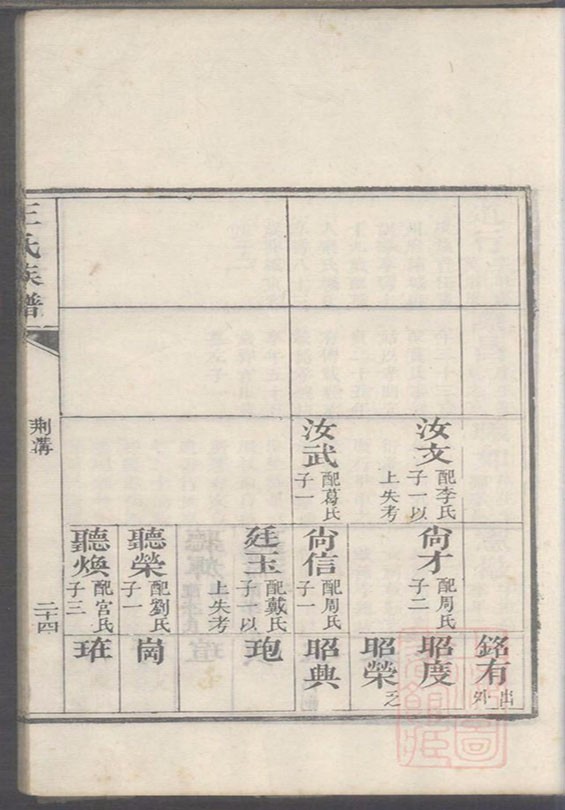 汝文
配李氏
子一以
上失考
汝武
配葛氏
子一
尙才
配周氏
子二
尙信
配周氏
子一
廷玉
配戴氏
子一以
上失考
聽榮
配劉氏
子一
聽煥
配宮氏
子三
銘有
出外
昭度
昭榮
之
昭典
玸
崗
王氏族譜
荆溝
二十四